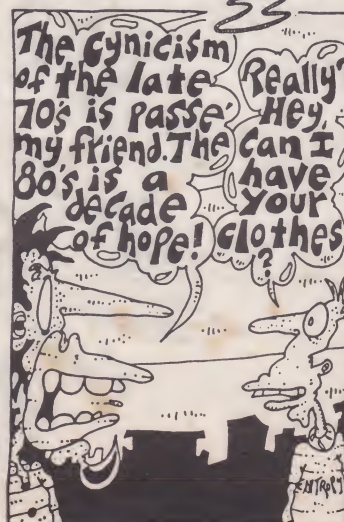 The Cynicism
of the late
70's is passé
my friend. The
80's is a
decade
of hope!
Really?
Hey,
can I
have
your
clothes
?
ENTROPY